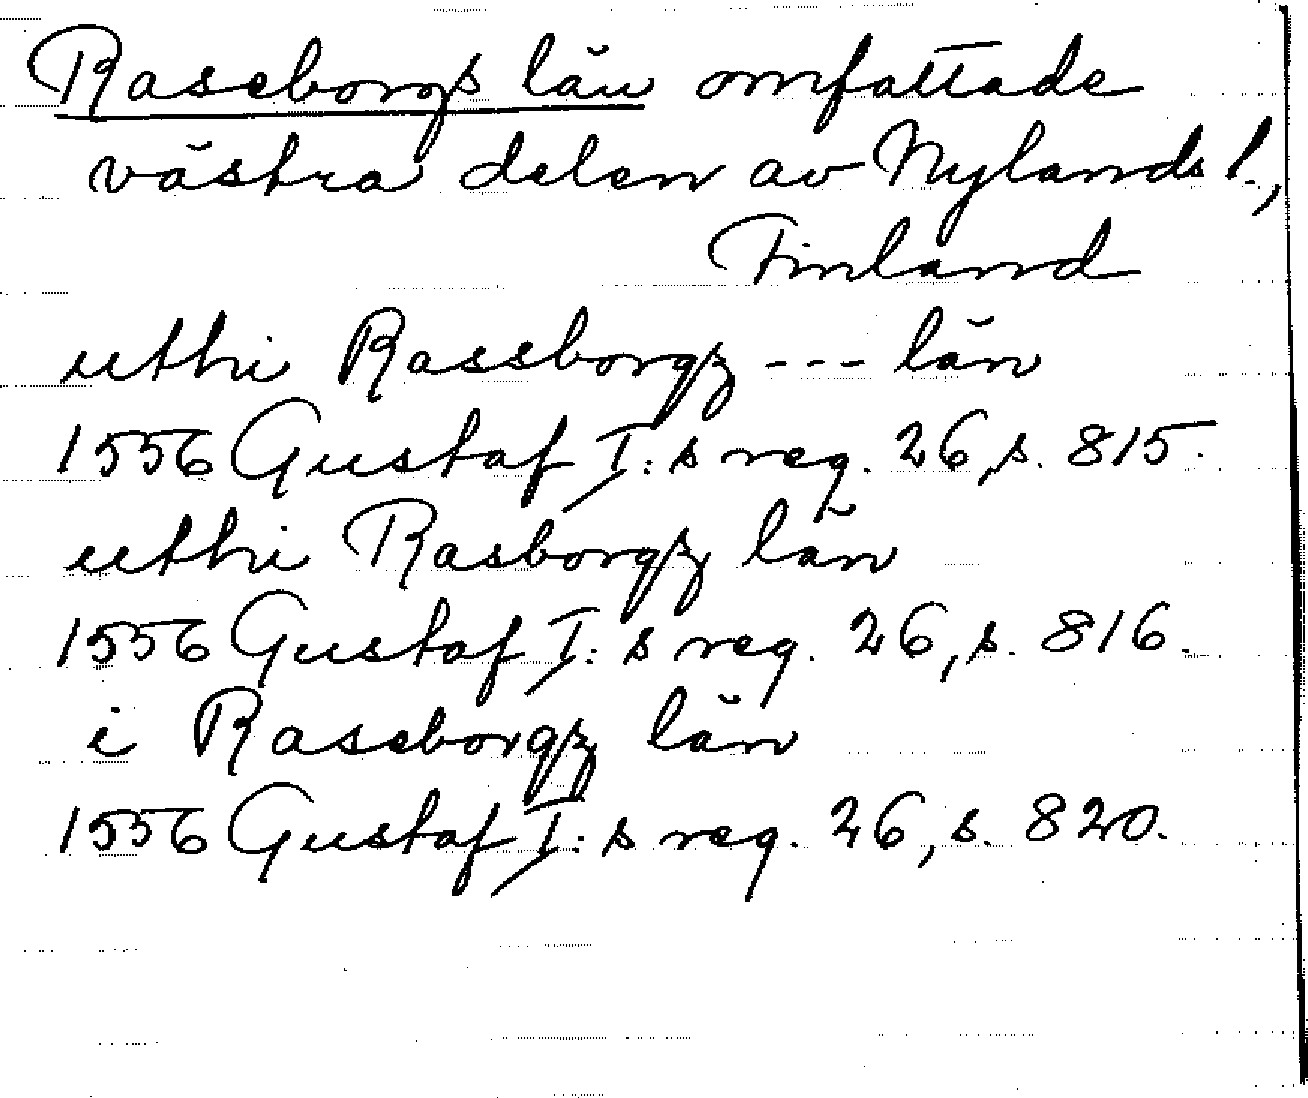 Raseborgs län omfattade
västra delen av Nylands l.,
Finland
utthi Rassborgz --- län
1556 Gustaf I:s reg. 26, s. 815.
utthi Rasborgz län
1556 Gustaf I:s reg. 26, s. 816.
i Raseborgz län
1556 Gustaf I:s reg. 26, s. 820.